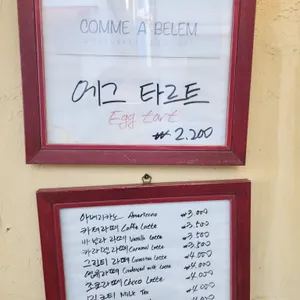 COMME A BELEM
에그 타르트
Egg tart
₩ 2.200
아메리카노 Americano ₩3.000
카페라떼 Caffe Latte ₩3.500
바닐라 라떼 Vanilla Latte ₩3.500
카라멜 라떼 Caramel Latte ₩3.500
그린티 라떼 Greentea Latte ₩4.000
연유라떼 Condensed milk Latte ₩4.000
초코라떼 Choco Latte ₩4.000
밀크티 Milk Tea